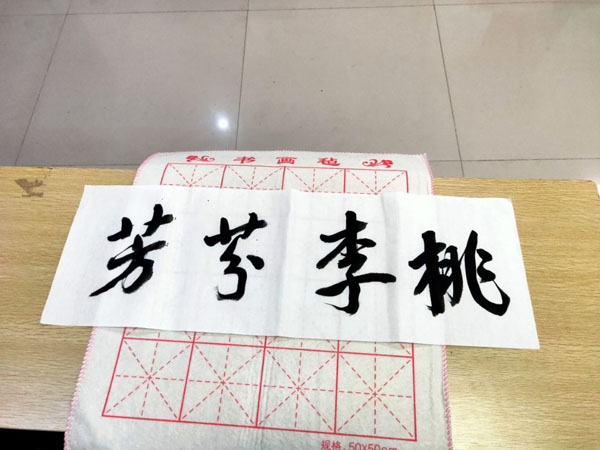 书画毡
桃李芬芳
规格:50X50cm